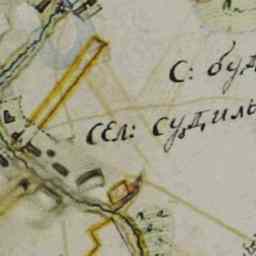 С: буд
сел: судиль